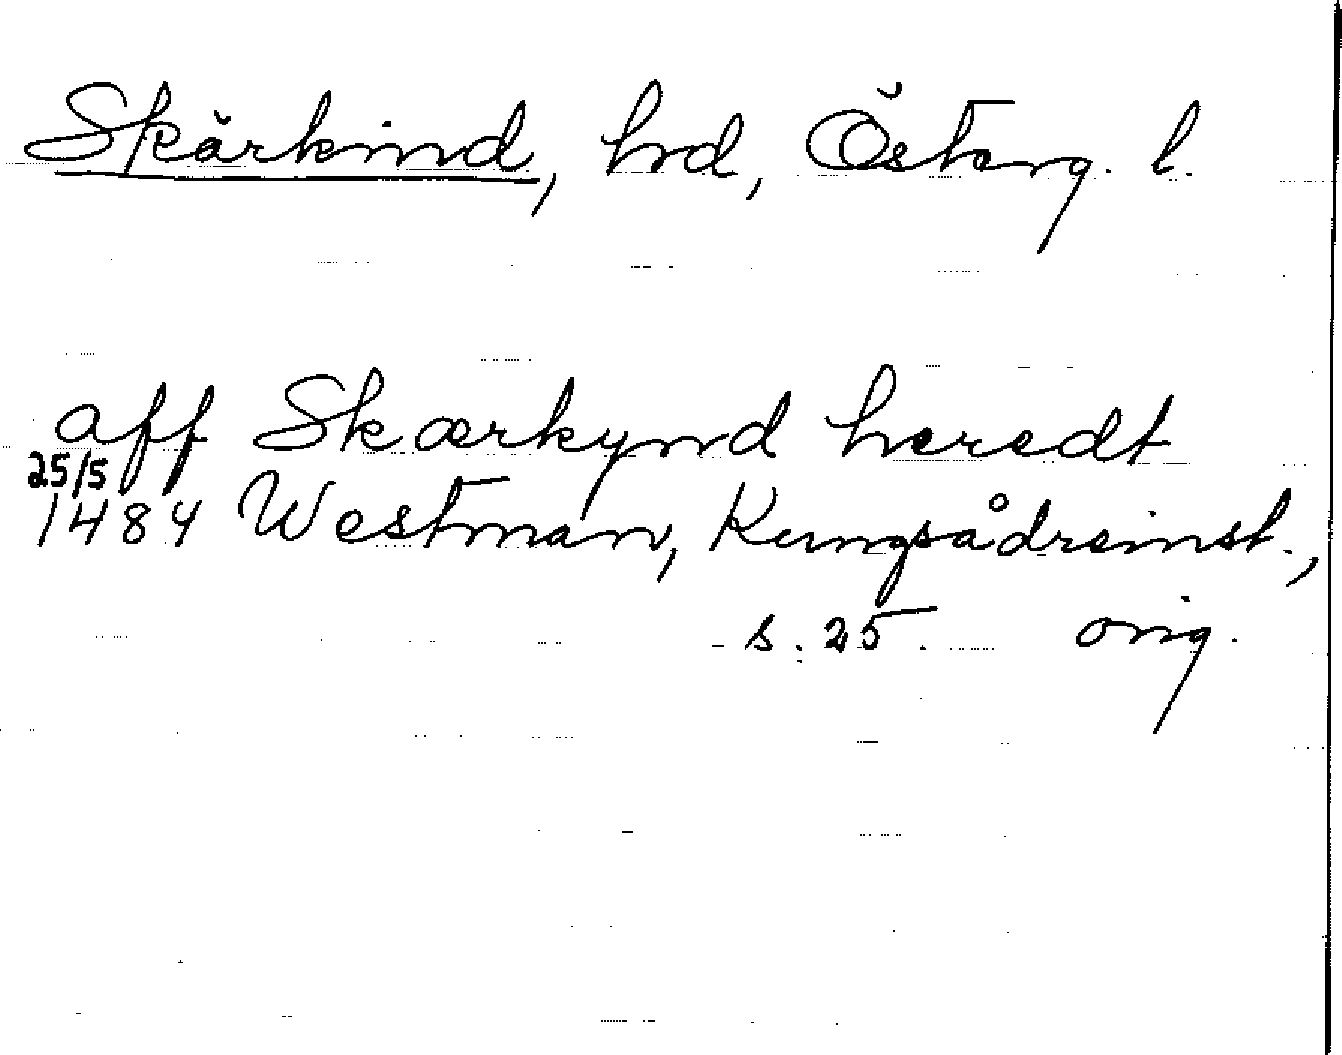 Skärkind, hrd, Österg. l.
aff Skærkynd heredt
25/5
1484 Westman, Kungsådreinst.,
s. 25. orig.